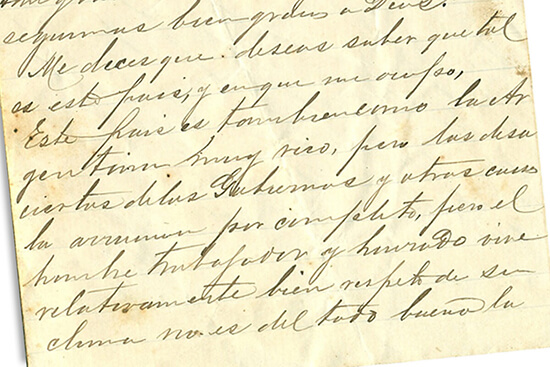 seguimos bien gracias a Dios.
Me dices que deseas saber que tal
es este pais, y en que me ocupo,
Este pais es tambien como la Ar
gentina muy rico, pero los desa
ciertos de los Gobiernos y otras cosas
la arruinan por completo, pero el
hombre trabajador y honrado vive
relativamente bien respeto de su
clima no es del todo bueno la